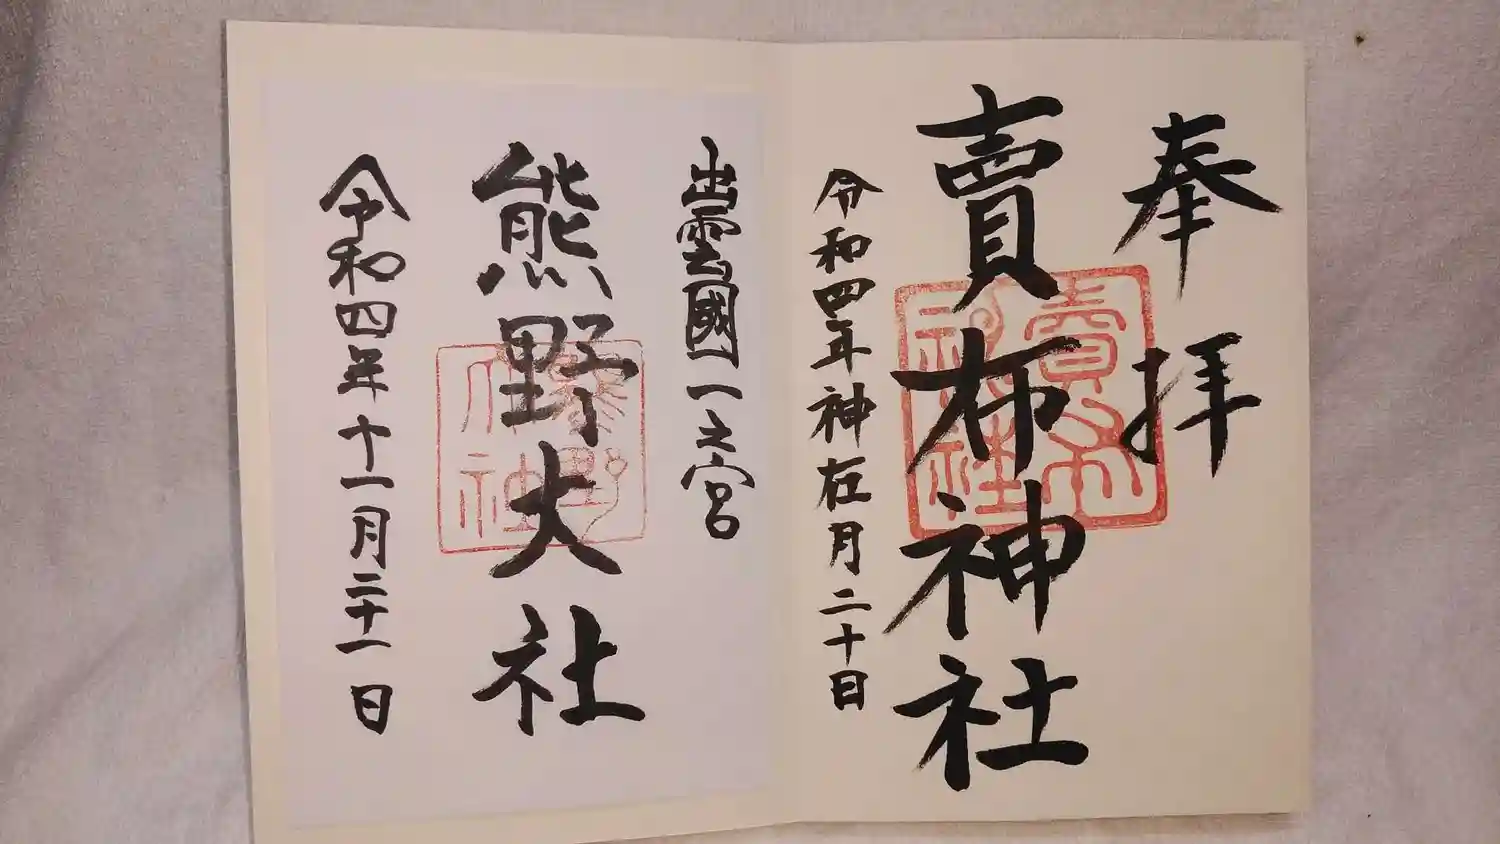 奉拝
賣布神社
令和四年神在月二十日
賣布
神社
出雲國一之宮
熊野大社
令和四年十一月二十一日
熊野
大社